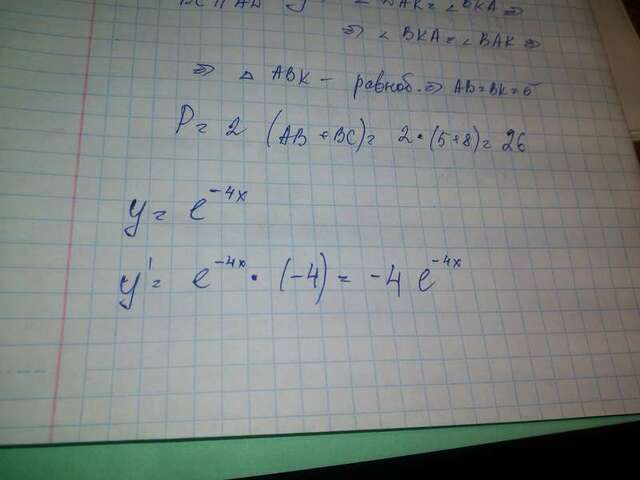 BC || AD ∠DAK = ∠BKA ⇒
⇒ ∠BKA = ∠BAK ⇒
⇒ △ ABK – равноб. ⇒ AB = BK = 5
P = 2 (AB + BC) = 2 • (5+8) = 26
y = e^{-4x}
y' = e^{-4x} • (-4) = -4 e^{-4x}